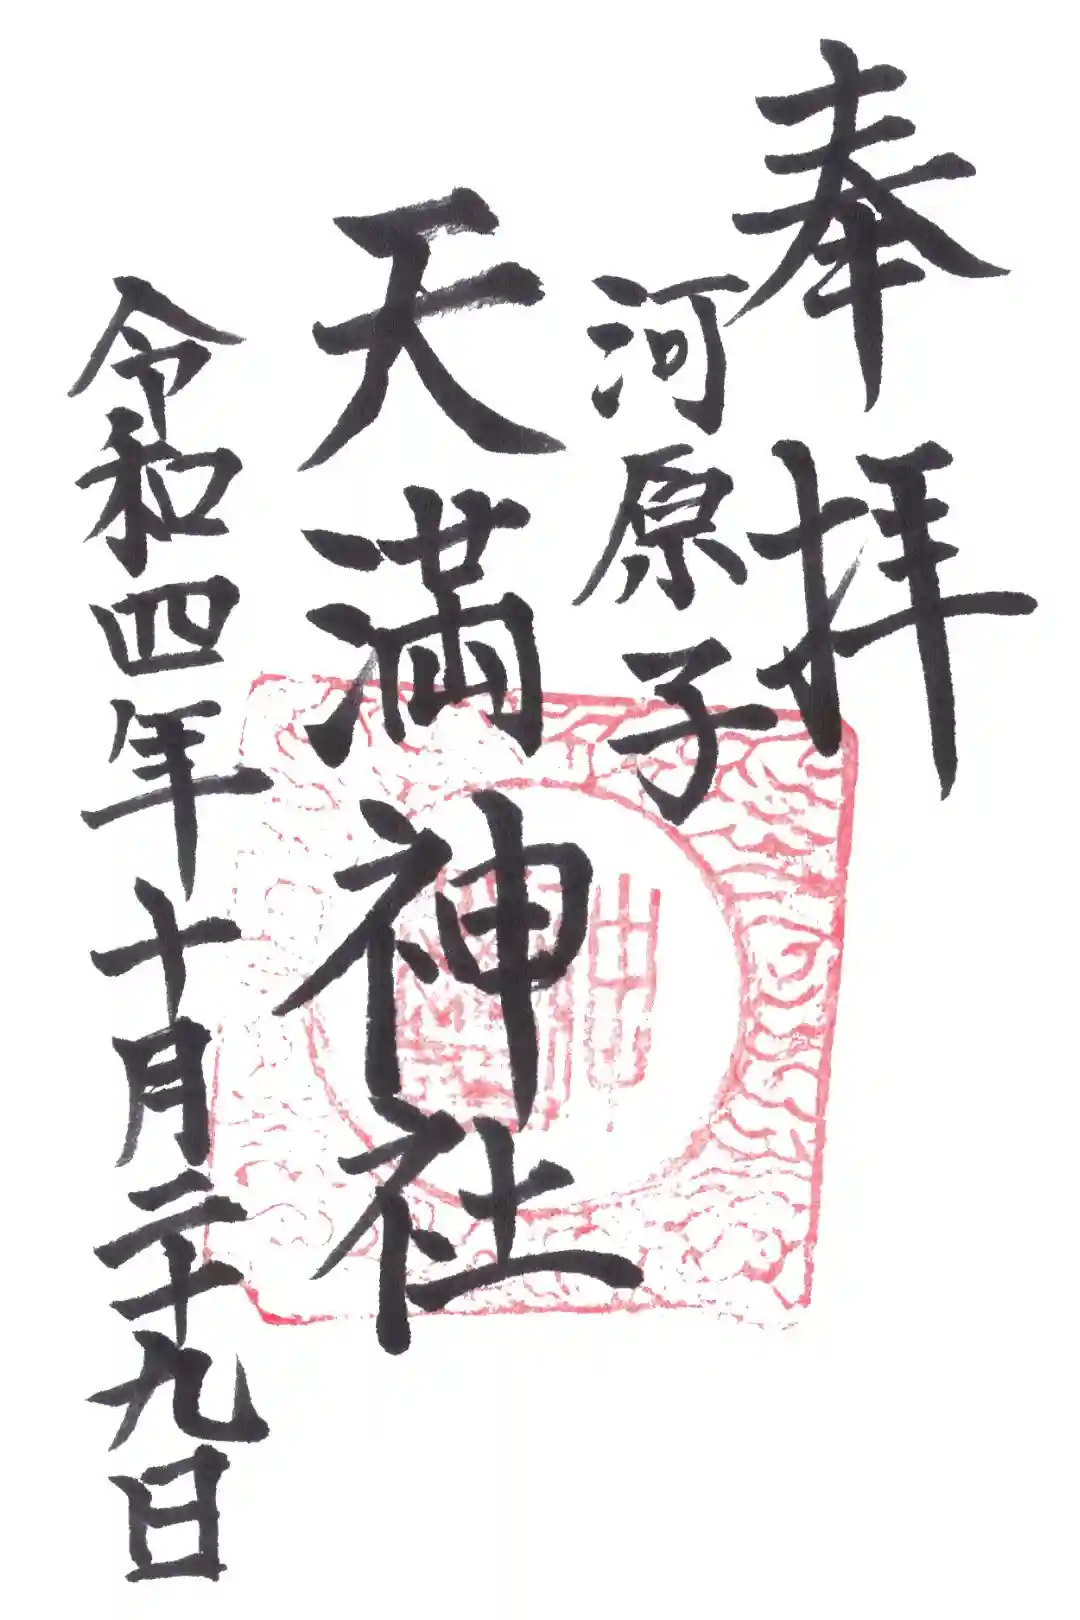 奉拝
河原子
天満神社
令和四年十月二十九日